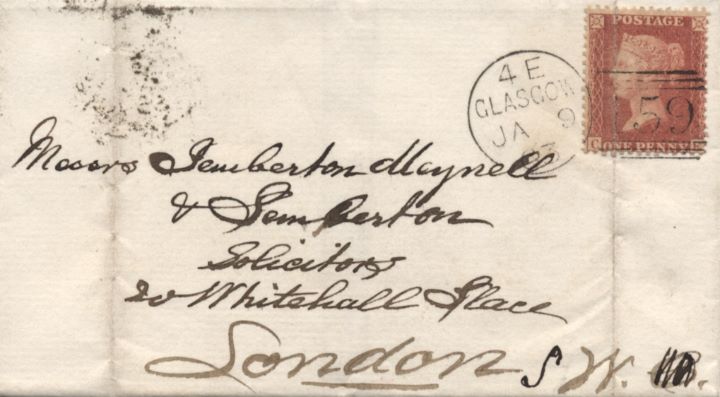 POSTAGE
4 E
GLASGOW
JA 9
159
ONE PENNY
Messrs Pemberton Meynell
& Pemberton
Solicitors
20 Whitehall Place
London S W.